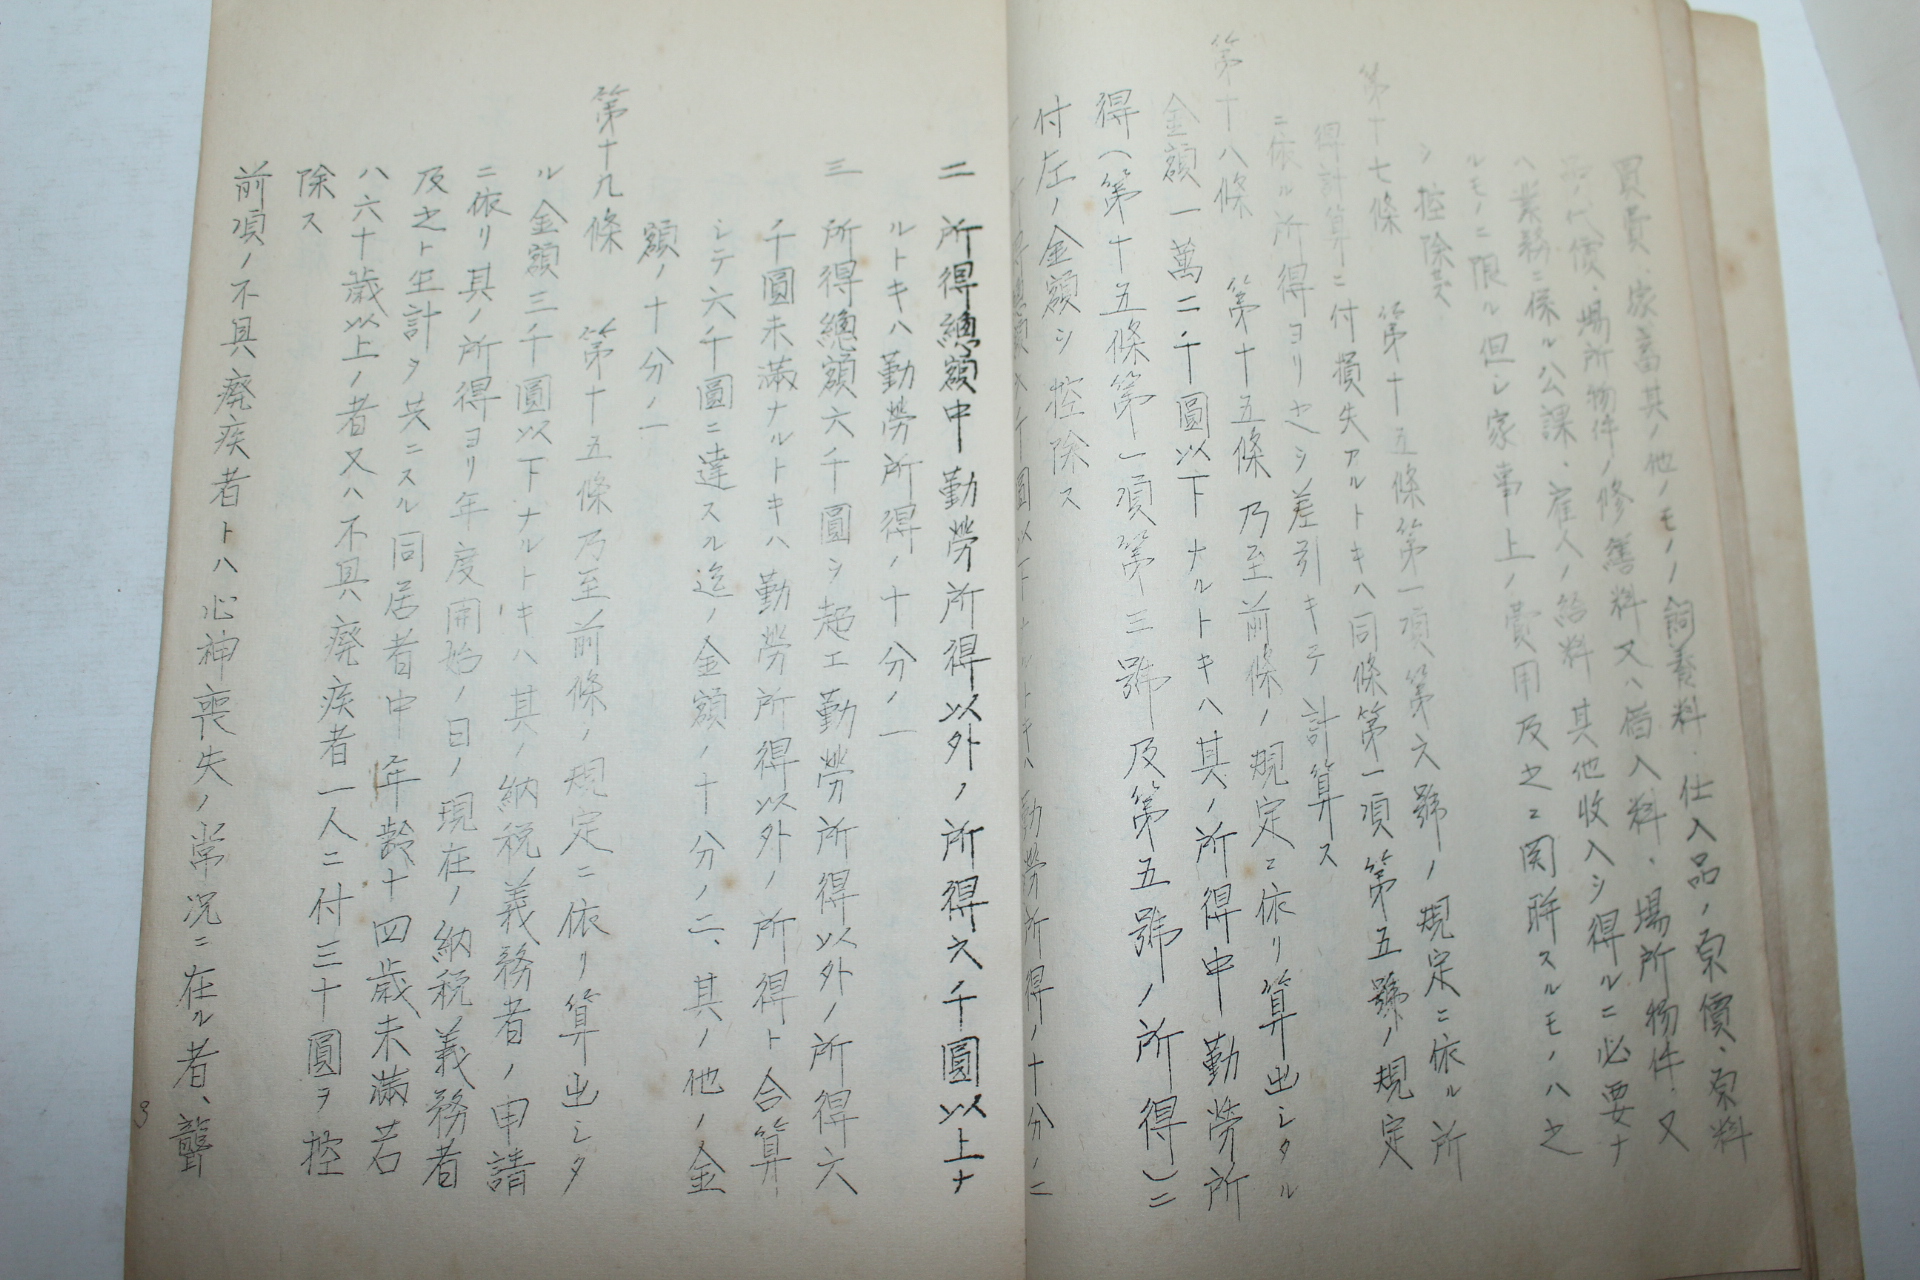 買費、家畜其ノ他ノモノノ飼養料、仕入品ノ原價、原料
品ノ代價、場所物件ノ修繕料又ハ借入料、場所物件、又
ハ業務ニ係ル公課、雇人ノ給料其他收入シ得ルニ必要ナ
ルモノニ限ル但シ家事上ノ費用及之ニ関聯スルモノハ之
シ控除セス
第十七條 第十五條第一項第六號ノ規定ニ依ル所
得計算ニ付損失アルトキハ同條第一項第五號ノ規定
ニ依ル所得ヨリ之シ差引キテ計算ス
第十八條 第十五條乃至前條ノ規定ニ依リ算出シタル
金額一萬二千圓以下ナルトキハ其ノ所得中勤勞所
得(第十五條第一項第三號及第五號ノ所得)ニ
付左ノ金額シ控除ス
一 所得總額六千圓以下ナルトキハ勤勞所得ノ十分ノ二
二 所得總額中勤勞所得以外ノ所得六千圓以上ナ
ルトキハ勤勞所得ノ十分ノ一
三 所得總額六千圓シ超エ勤勞所得以外ノ所得六
千圓未滿ナルトキハ勤勞所得以外ノ所得ト合算
シテ六千圓ニ達スル迄ノ金額ノ十分ノ二、其ノ他ノ金
額ノ十分ノ一
第十九條 第十五條乃至前條ノ規定ニ依リ算出シタ
ル金額三千圓以下ナルトキハ其ノ納税義務者ノ申請
ニ依リ其ノ所得ヨリ年度開始ノ日ノ現在ノ納税義務者
及之ト生計ヲ共ニスル同居者中年齡十四歳未滿若
ハ六十歳以上ノ者又ハ不具廢疾者一人ニ付三十圓ヲ控
除ス
前項ノ不具廢疾者トハ心神喪失ノ常況ニ在ル者、聾
3